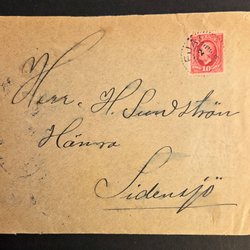 Herr H. Sundström
Hämra
Sidensjö
10